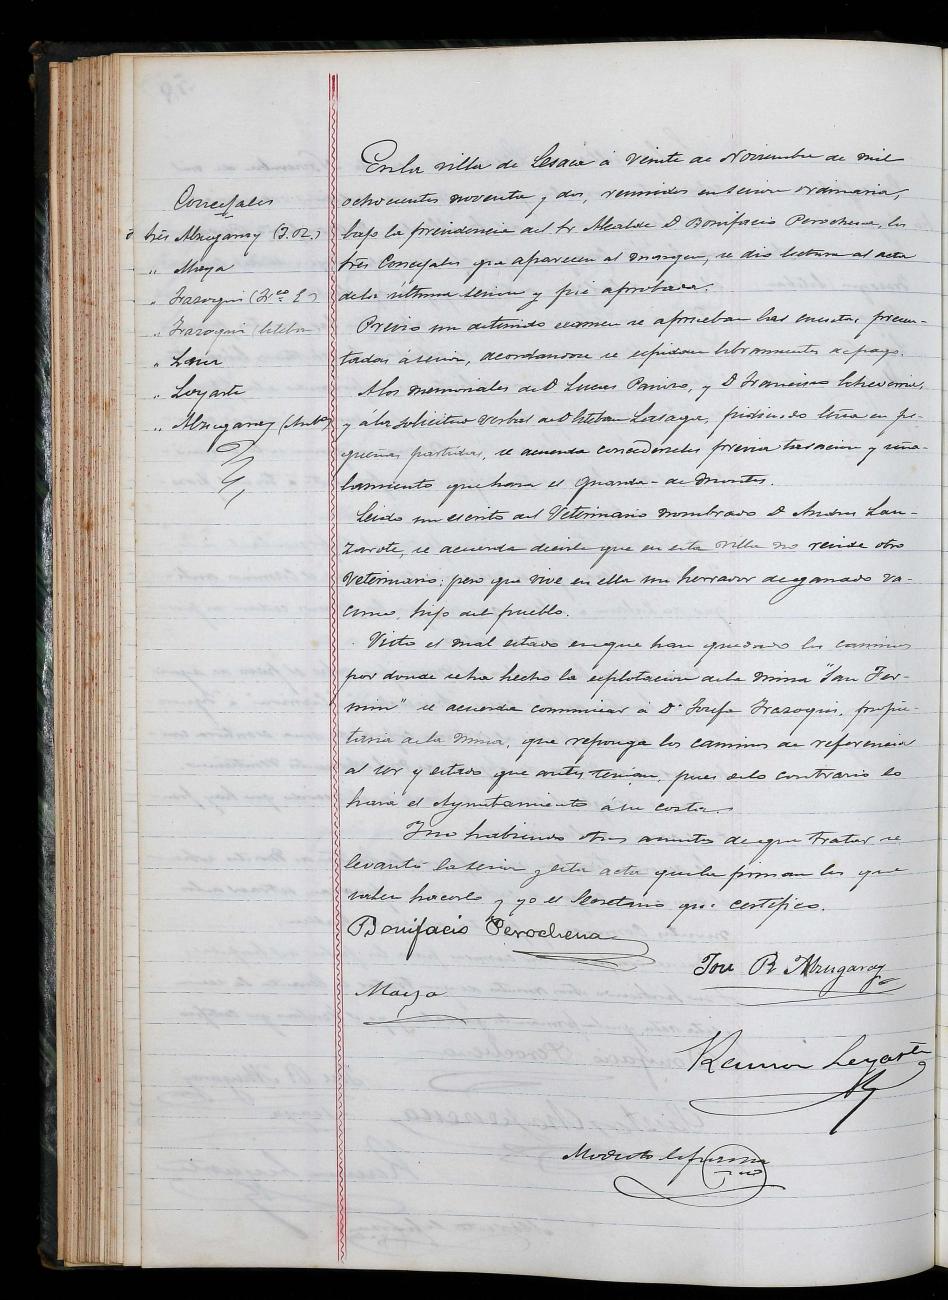 Concejales
Sres Abrugaray (J. R.)
" Maya
" Irazoqui (Fco E.)
" Irazoqui (Esteban
" Lanz
" Loyarte
" Abrugaray (Anto)
En la villa de Lesaca á veinte de Noviembre de mil
ochocientos noventa y dos, reunidos en sesion ordinaria,
bajo la presidencia del Sr Alcalde D Bonifacio Perochena, los
tres Concejales que aparecen al margen, se dio lectura al acta
de la última sesion y fué aprobada.
Previo un detenido examen se aprueban las cuentas presen-
tadas á sesion, acordandose se espidan libramientos de pago.
A los memoriales de D Lucas y D Francisco Echeverria,
y á la solicitud verbal de D Esteban Lasaga, pidiendo leña en pe-
queñas partidas, se acuerda concederseles previa tasacion y seña-
lamiento que hara el Guarda-de montes.
Leido un escrito del Veterinario nombrado D Andres Lan-
zarote, se acuerda decirle que en esta villa no reside otro
Veterinario; pero que vive en ella un herrador de ganado va-
cuno, hijo del pueblo.
Visto el mal estado en que han quedado los caminos
por donde se ha hecho la esplotacion de la mina "San Fer-
min" se acuerda comunicar á Dª Josefa Irazoqui, propie-
taria de la mina, que reponga los caminos de referencia
al ser y estado que antes tenian, pues de lo contrario lo
hará el Ayuntamiento á su costa.
Y no habiendo otros asuntos de que tratar se
levantó la sesion y esta acta que la firman los que
saben hacerlo y yo el Secretario que certifico.
Bonifacio Perochena
José R Abrugaray
Maya
Ramon Loyarte
Modesto